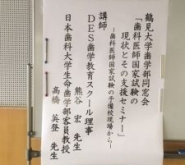 鶴見大学歯学部同窓会
「歯科医師国家試験の
現状とその支援セミナー」
～歯科医師国家試験の予備校現場から～
講師
DES歯学教育スクール理事
熊谷 宏 先生
日本歯科大学生命歯学部客員教授
高橋 英登 先生